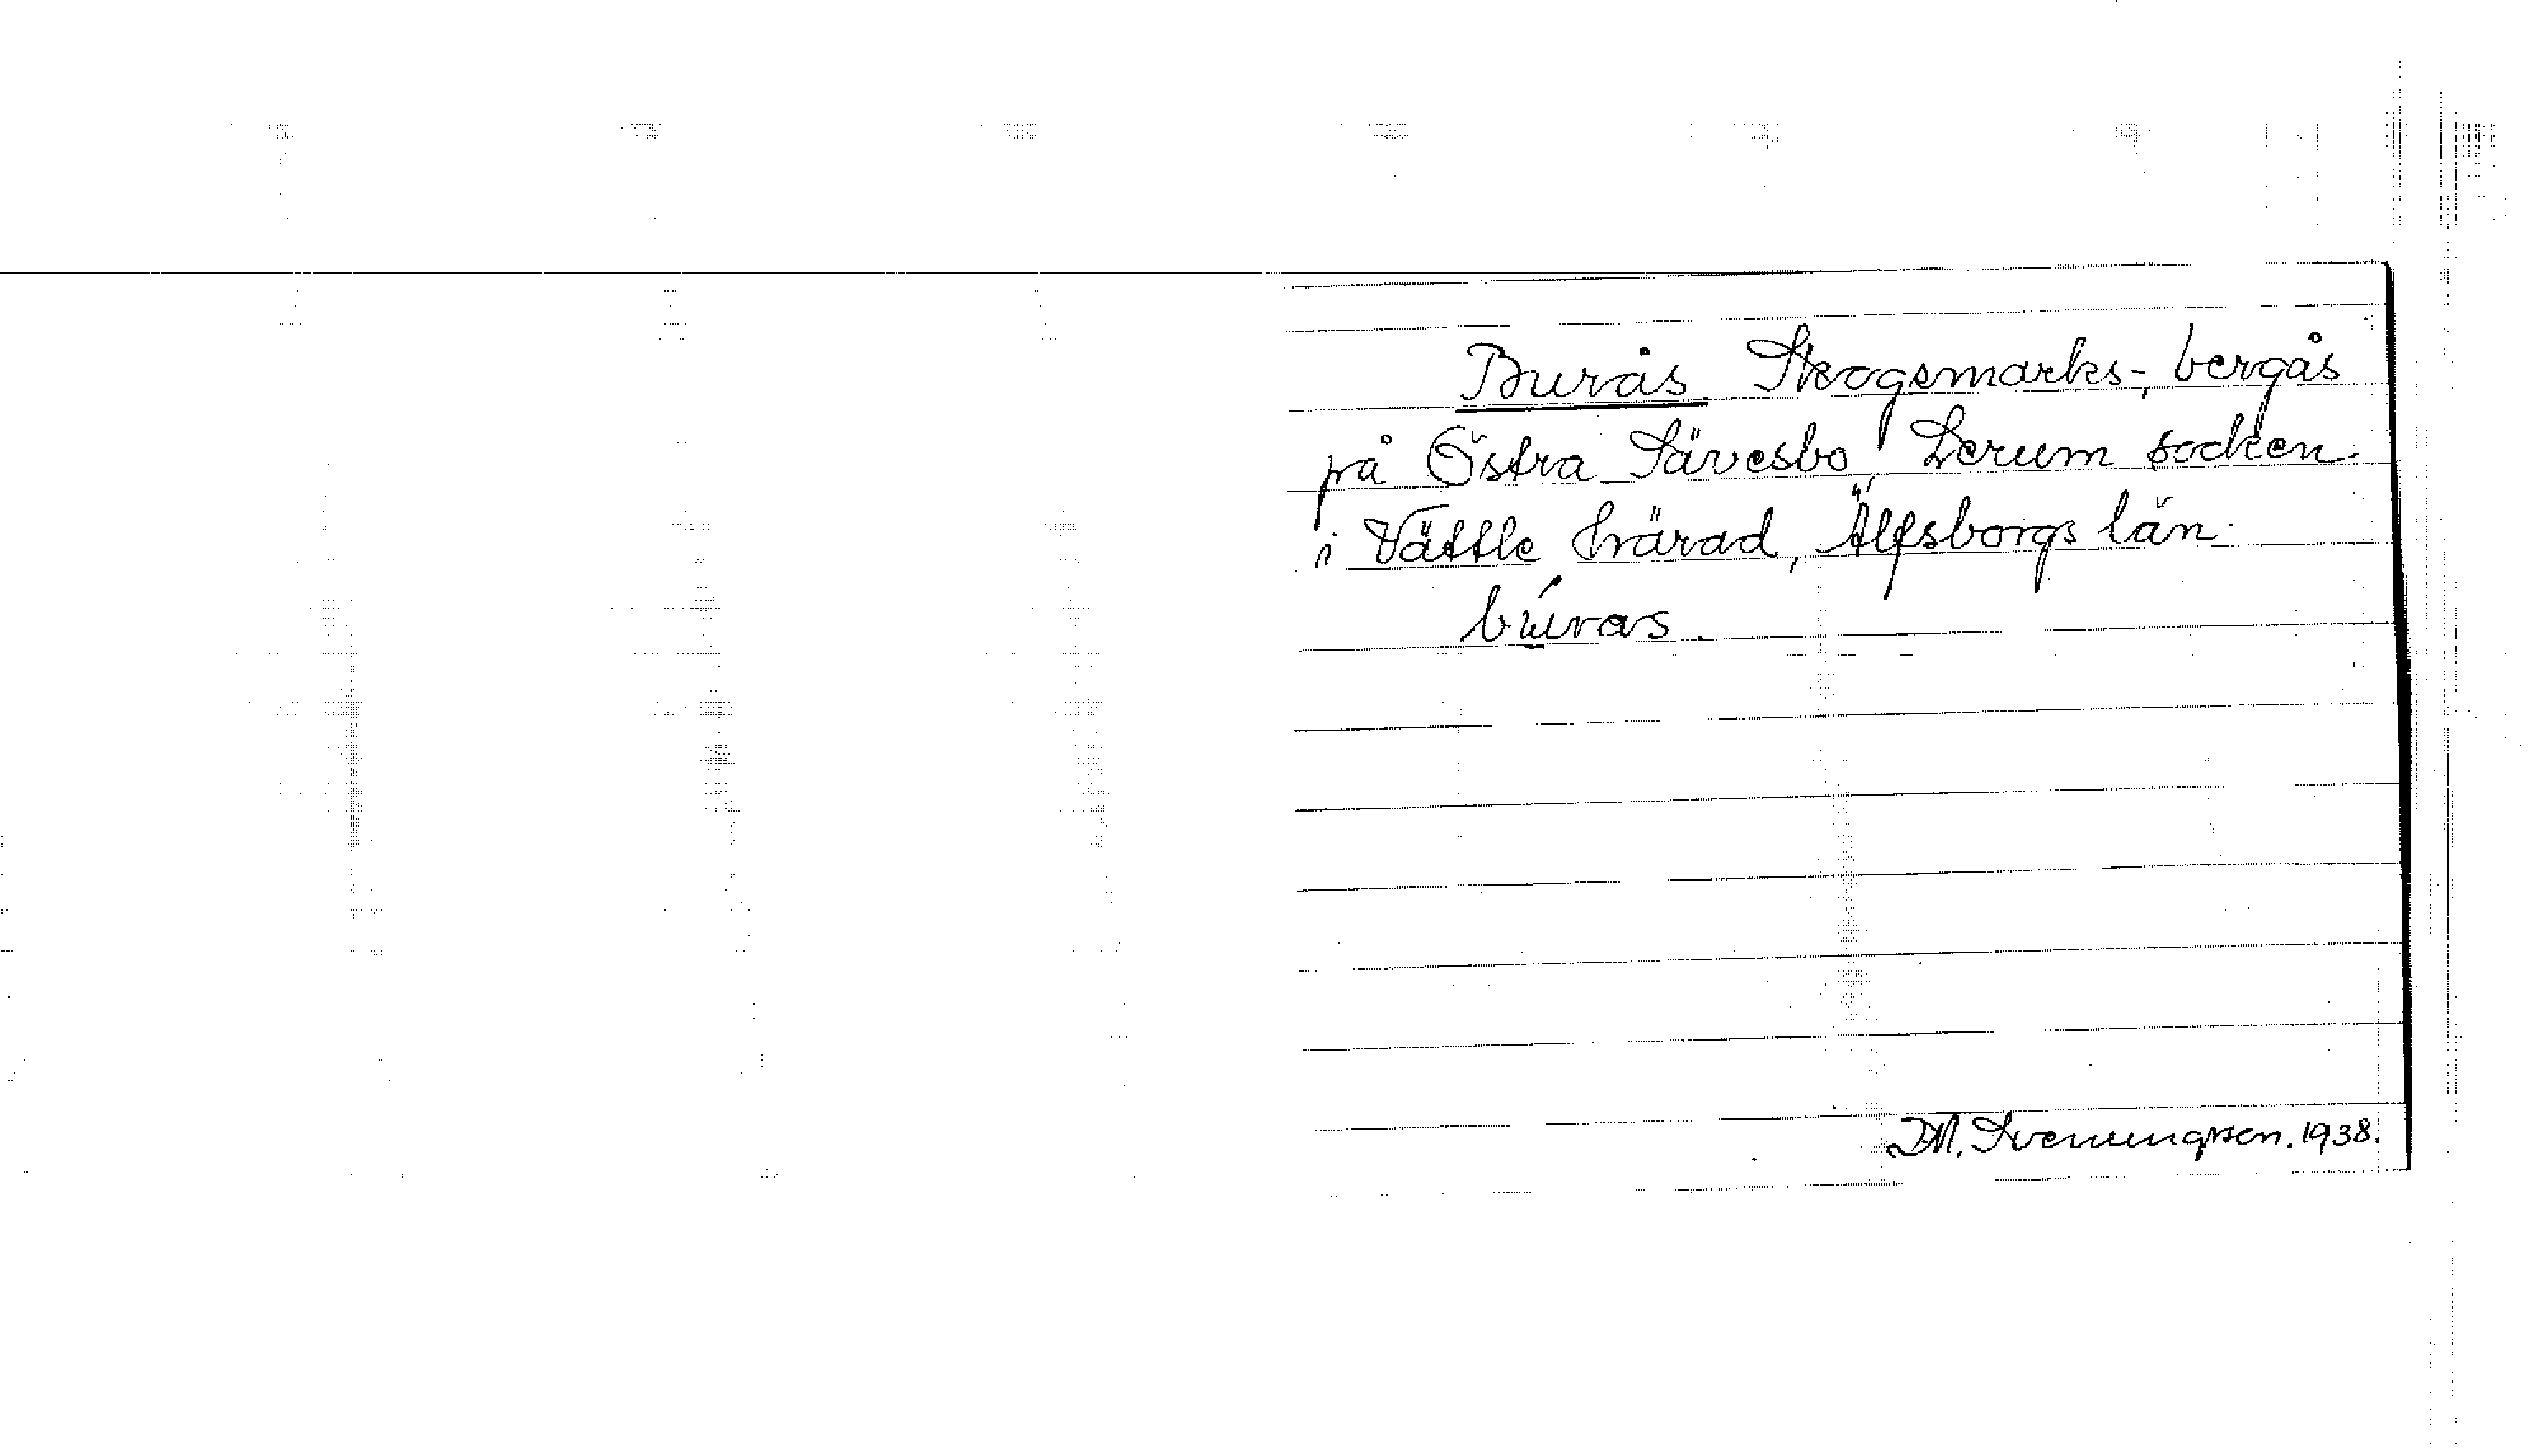 Burås. Skogsmarks-, bergås
på Östra Sävesbo, Lerum socken
i Vättle härad, Älfsborgs län.
bu̍ras.
D.M. Svenungsson. 1938.